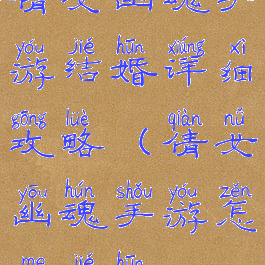 倩女幽魂手
yóu jié hūn xiáng xì
游结婚详细
gōng lüè qiàn nǚ
攻略(倩女
yōu hún shǒu yóu zěn
幽魂手游怎
me jié hūn